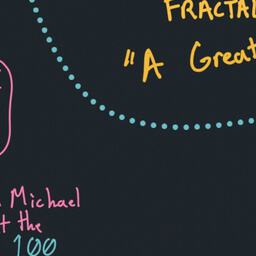 FRACTA
"A Great
Michael
t the
100